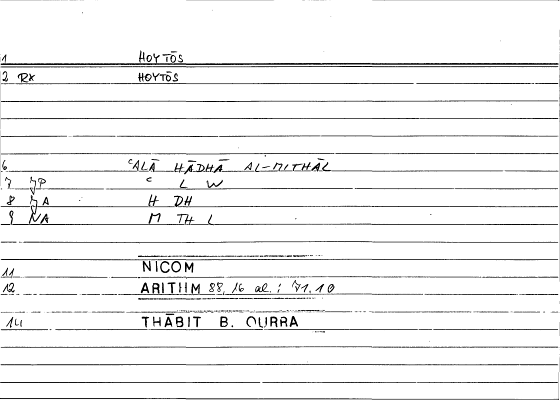 1 HOYTŌS
2 RX HOYTŌS
6 ʿALĀ HĀDHĀ AL-MITHĀL
7 JP ʿ L W
8 JA H DH
9 NA M TH L
11 NICOM
12 ARITHM 88, 16 al. : 71.10
14 THĀBIT B. QURRA